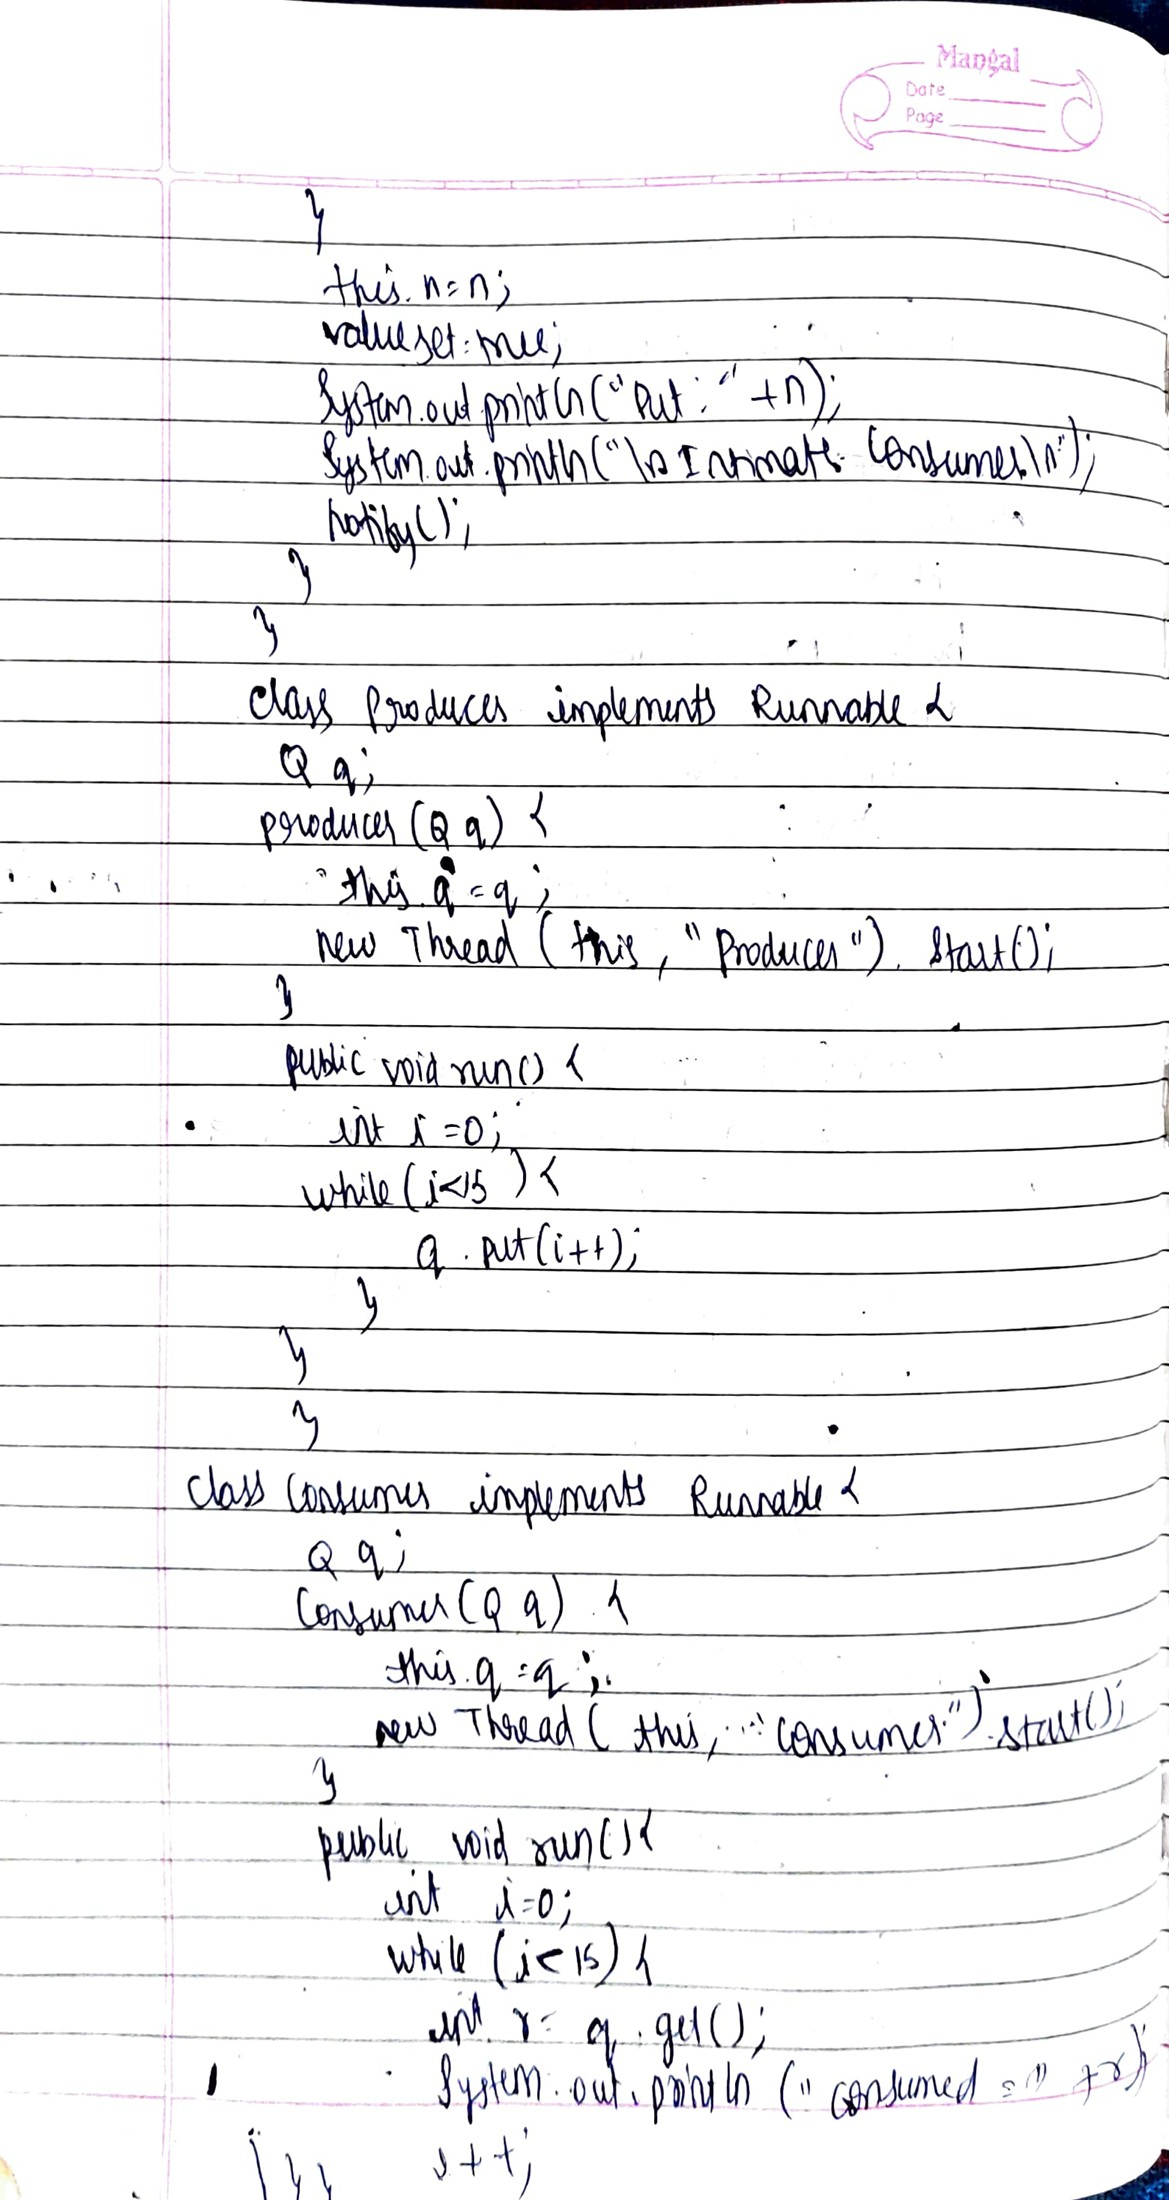 Mangal
Date
Page
}
this.n=n;
valueset=true;
System.out.println("Put:" +n);
System.out.println("\n Intimate Consumer\n");
notify();
}
}
class Producer implements Runnable {
Q q;
producer(Q q) {
this.q=q;
new Thread (this, "Producer").start();
}
public void run() {
int i=0;
while(i<15) {
q.put(i++);
}
}
}
class Consumer implements Runnable {
Q q;
Consumer(Q q) {
this.q=q;
new Thread (this, "consumer").start();
}
public void run(){
int i=0;
while (i<15) {
int r= q.get();
System.out.println ("consumed =" +r);
i++;
} } }